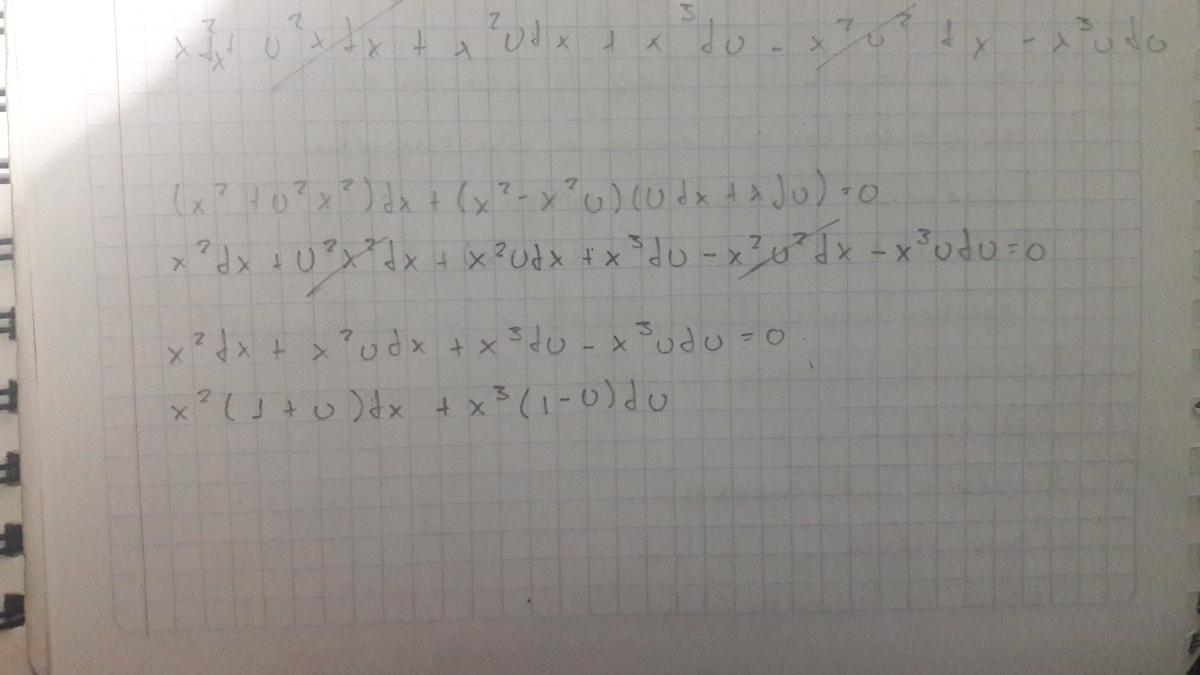 x²dx + u²xdx + x²udx + x³du - x²u²dx - x³udu
(x² + u²x²)dx + (x² - x²u)(udx + xdu) = 0
x²dx + u²x²dx + x²udx + x³du - x²u²dx - x³udu = 0
x²dx + x²udx + x³du - x³udu = 0
x²(1 + u)dx + x³(1 - u)du